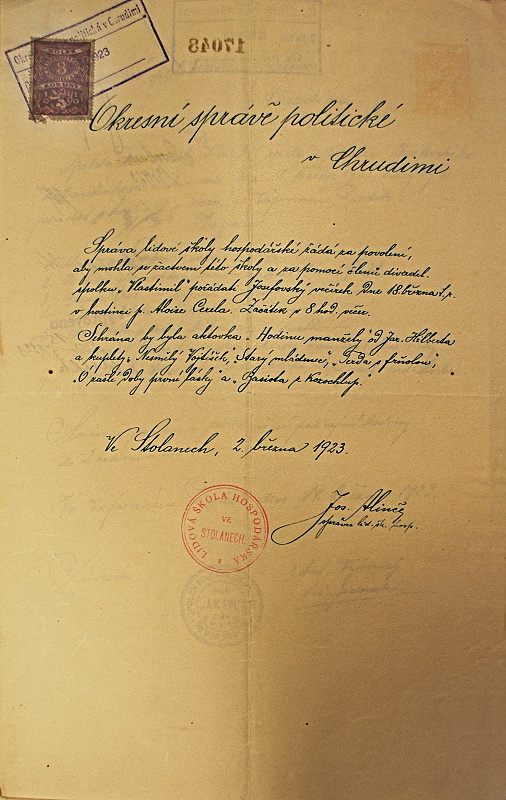 17048
1923
KOLEK
3
KORUNY
Okresní správě politické
v Chrudimi
Správa lidové školy hospodářské žádá za povolení,
aby mohla se žactvem této školy a za pomoci členů divadel.
spolku „Vlastimil" pořádati Josefovský večírek dne 18. března t. r.
v hostinci p. Aloise Cecla. Začátek v 8 hod. večer.
Sehrána by byla aktovka „Hodinu manžely" od Jar. Hilberta
a kuplety: „Nesmělý Vojtíšek", „Starý mládenec", „Ferda s frňolou",
„O zašlé doby první lásky" a „Basista z Kozochlup."
Ve Stolanech, 2. března 1923.
LIDOVÁ ŠKOLA HOSPODÁŘSKÁ
VE
STOLANECH
Jos.
správce lid. šk. hosp.